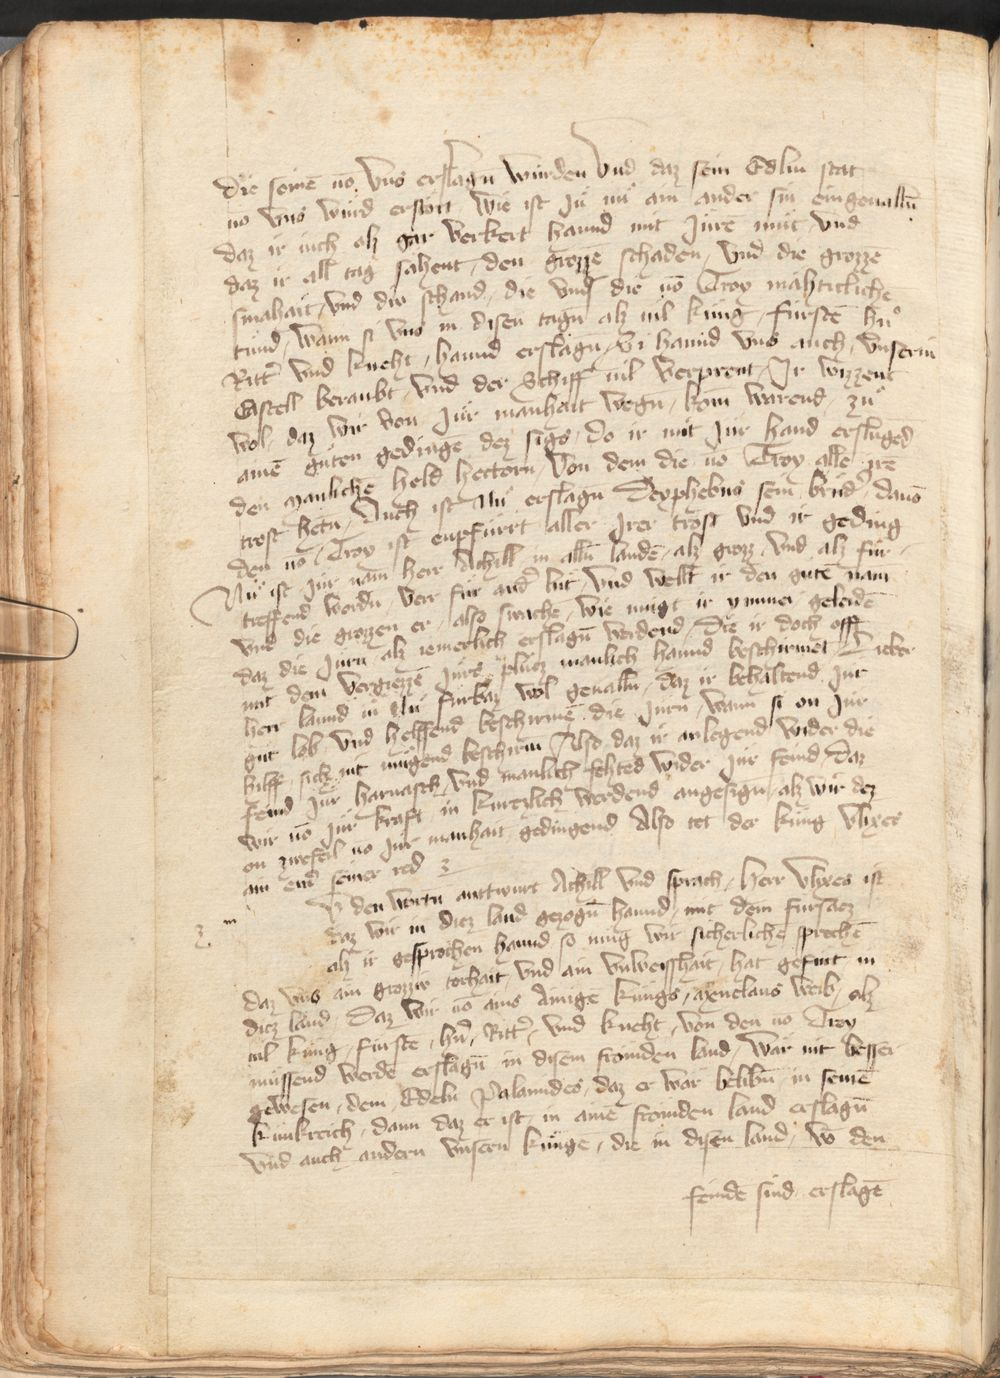 die seinē vō vns erslagn wurden Vnd daz sein Edlin stat
vō vns wurd erstört Wie ist Jü nu ain ander sin eingeuallū
daz ir iuch alz gar verkert hannd mit Jurē mut Vnd
daz ir all tag sahent den grozzē schaden Vnd die grozzē
smahait Vnd diu schand die vns die vō Troy mähticliche
tund Wann si vns in disen tagn alz vil king fürstē hn
Ritt Vnd kneht hannd erslagn Si hannd vns auch vnserm
Castell beraubt Vnd der Schiff vil verprent Jr wizzent
wol daz wir von Jur manhait wegn kom warend zu
ainē guten gedinge dez sigs do ir mit Jur hand erslüged
den manliche held hectorn Von dem die vō Troy alle jrē
trost hetn Auch ist Nu erslagn Deyphebus sein brud dauō
den vō Troy ist enpfürrt aller Jrer trost Vnd ir geding
Nu ist Jur nam herr Achill in alln landē alz grozz Vnd alz für
treffend wordn verr für and lüt Vnd wellt ir den gutē nam
vnd die grozzen er also swache wie mügt ir ymmer geleidē
daz die Jurn alz iemerlich erslagn werdend Die ir doch offt
mit dem vergiezzē Jurs plütz manlich hannd beschirmet Lieber
herr lannd iu Nu fürbaz wol geualln daz ir behaltend Jur
gut lob Vnd helffend beschirmē die Jurn Wann si on Jur
hilff sich nit mügend beschirm Also daz ir anlegend wider die
feind Jur harnasch Vnd manlich fehted wider Jur feind Daz
wir vō Jur kraft in kurtzlich werdend angesign alz wir dez
on zweifel vō Jur manhait gedingend Also tet der küng Vlixes
ain end seiner red
Zu den wortn anttwurt Achill Vnd sprach Herr Vlixes ist
daz wir in ditz land gezogn hannd mit dem fürsatz
alz ir gesprochen hannd so müg wir sicherliche sprechē
daz vns ain grozziu torhait Vnd ain vnweisshait hat gefürt in
ditz land Daz wir vō ains Ainigē küngs Menelaus weib alz
vil küng fürstē hn Ritt Vnd kneht von den vō Troy
müssend werdē erslagn in disem frömden land Wär nit besser
gewesen dem Edeln Palamides daz er wär belibn in seinē
künkreich dann daz er ist in ainē frömden land erslagn
Vnd auch andern vnsern künge die in disen land vō den
feindē sind erslagē